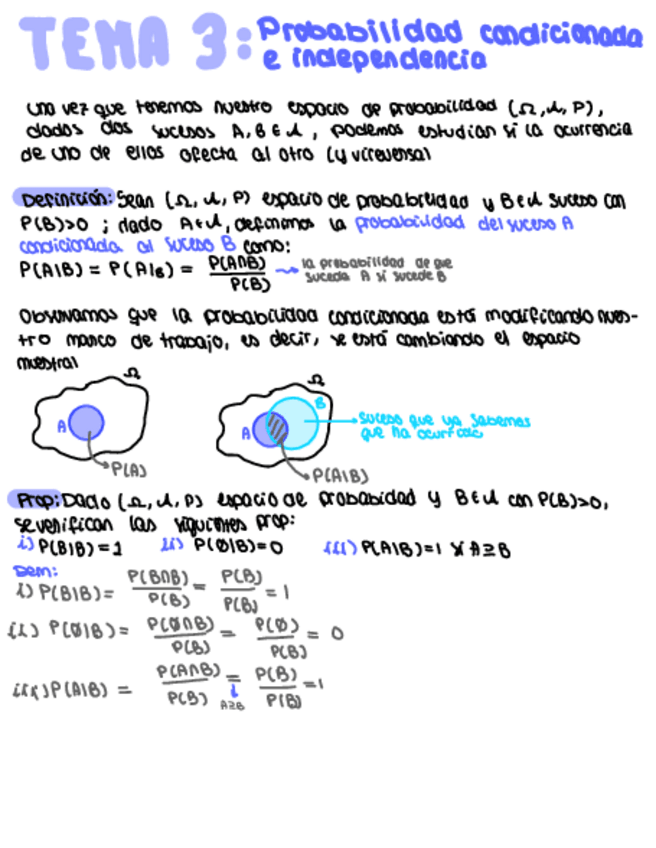 TEMA 3: Probabilidad condicionada
e independencia
Una vez que tenemos nuestro espacio de probabilidad (Ω, A, P),
dados dos sucesos A, B ∈ A, podemos estudiar si la ocurrencia
de uno de ellos afecta al otro (y viceversa)
Definición: Sean (Ω, A, P) espacio de probabilidad y B∈A suceso con
P(B)>0 ; dado A∈A, definimos la probabilidad del suceso A
condicionada al suceso B como:
P(A|B) = P(A|B) = P(A∩B) / P(B) → la probabilidad de que
suceda A si sucede B
Observamos que la probabilidad condicionada está modificando nues-
tro marco de trabajo, es decir, se está cambiando el espacio
muestral
Ω
A
P(A)
Ω
B
A
P(A|B)
suceso que ya sabemos
que ha ocurrido
Prop: Dado (Ω, A, P) espacio de probabidad y B∈A con P(B)>0,
se verifican las siguientes prop:
i) P(B|B) = 1 ii) P(Ø|B) = 0 iii) P(A|B) = 1 si A⊇B
Dem:
i) P(B|B) = P(B∩B) / P(B) = P(B) / P(B) = 1
ii) P(Ø|B) = P(Ø∩B) / P(B) = P(Ø) / P(B) = 0
iii) P(A|B) = P(A∩B) / P(B) = P(B) / P(B) = 1
↓
A⊇B